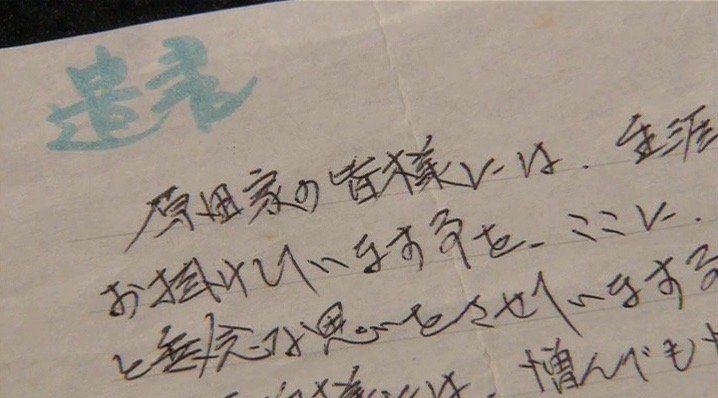 遺書
原田家の皆様には、生涯
お掛けしていますことを、ここに、
と無念な思いをさせていますこ
様には、憎んでも